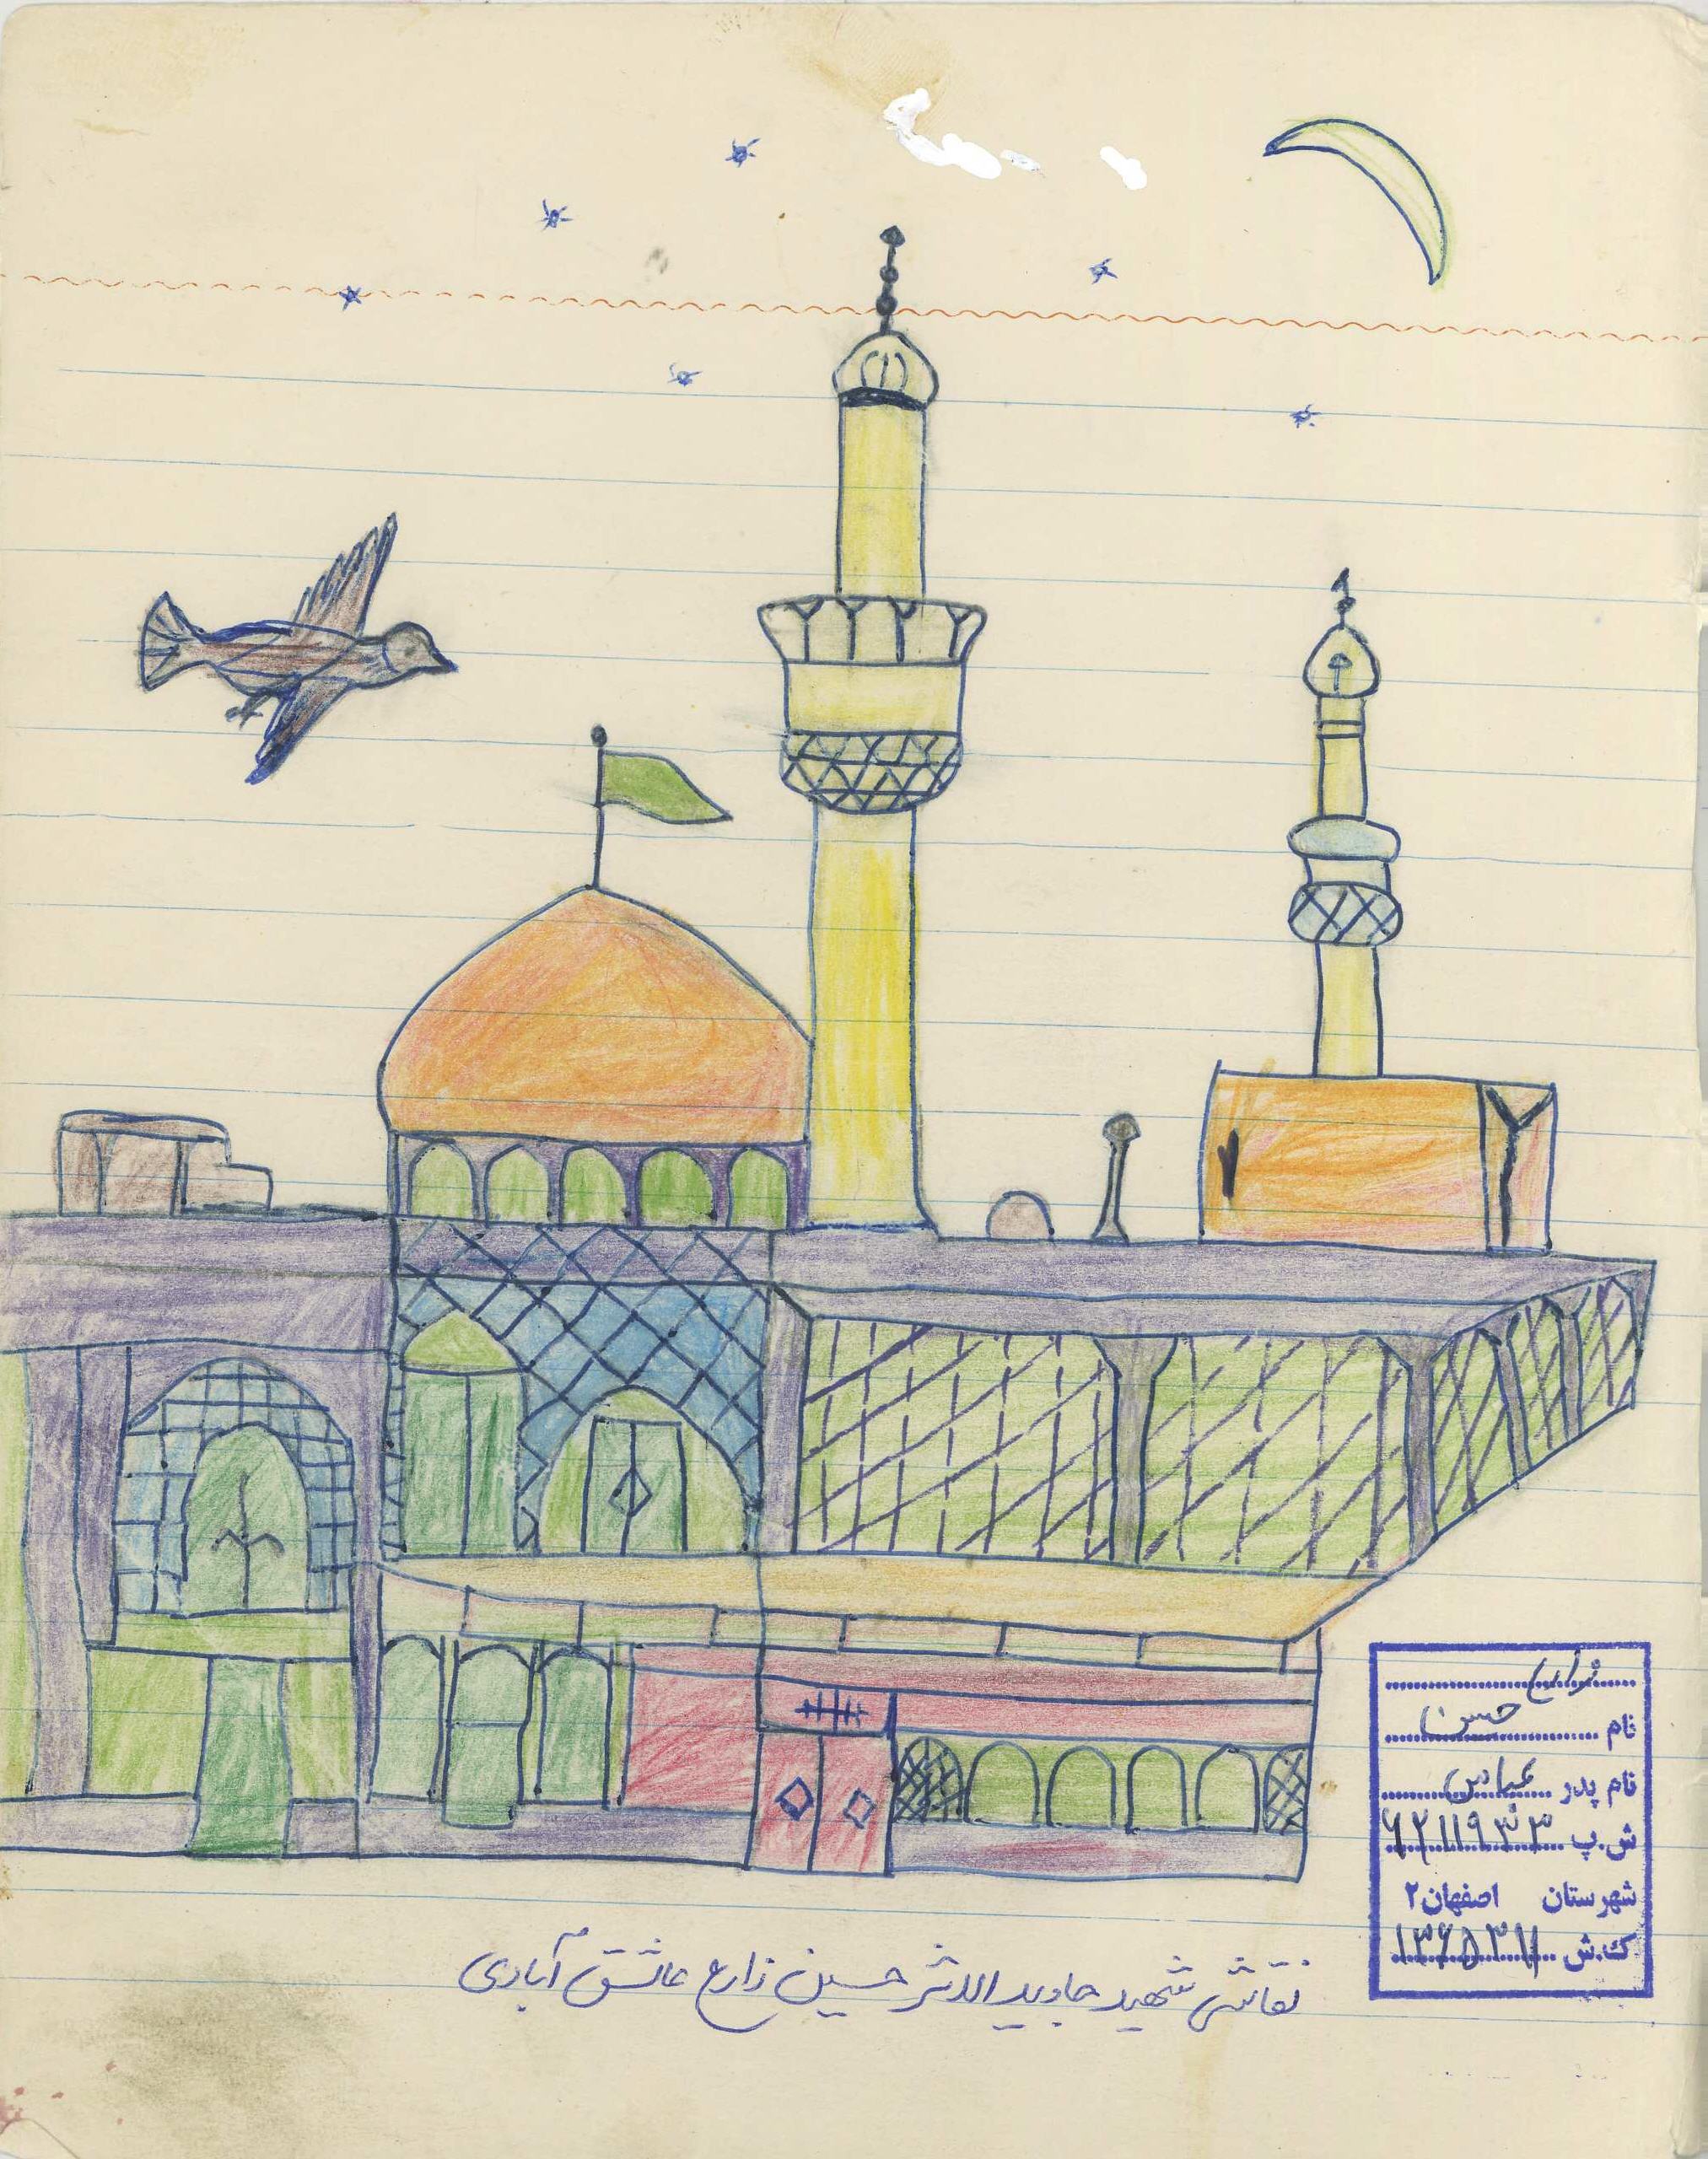 زارع
نام حسین
نام پدر عباس
ش.پ ۶۲۱۱۹۳۳
شهرستان اصفهان۲
ک.ش ۱۳۶۵۳۱۱
نقاشی شهید جاوید الاثر حسین زارع عاشق آبادی